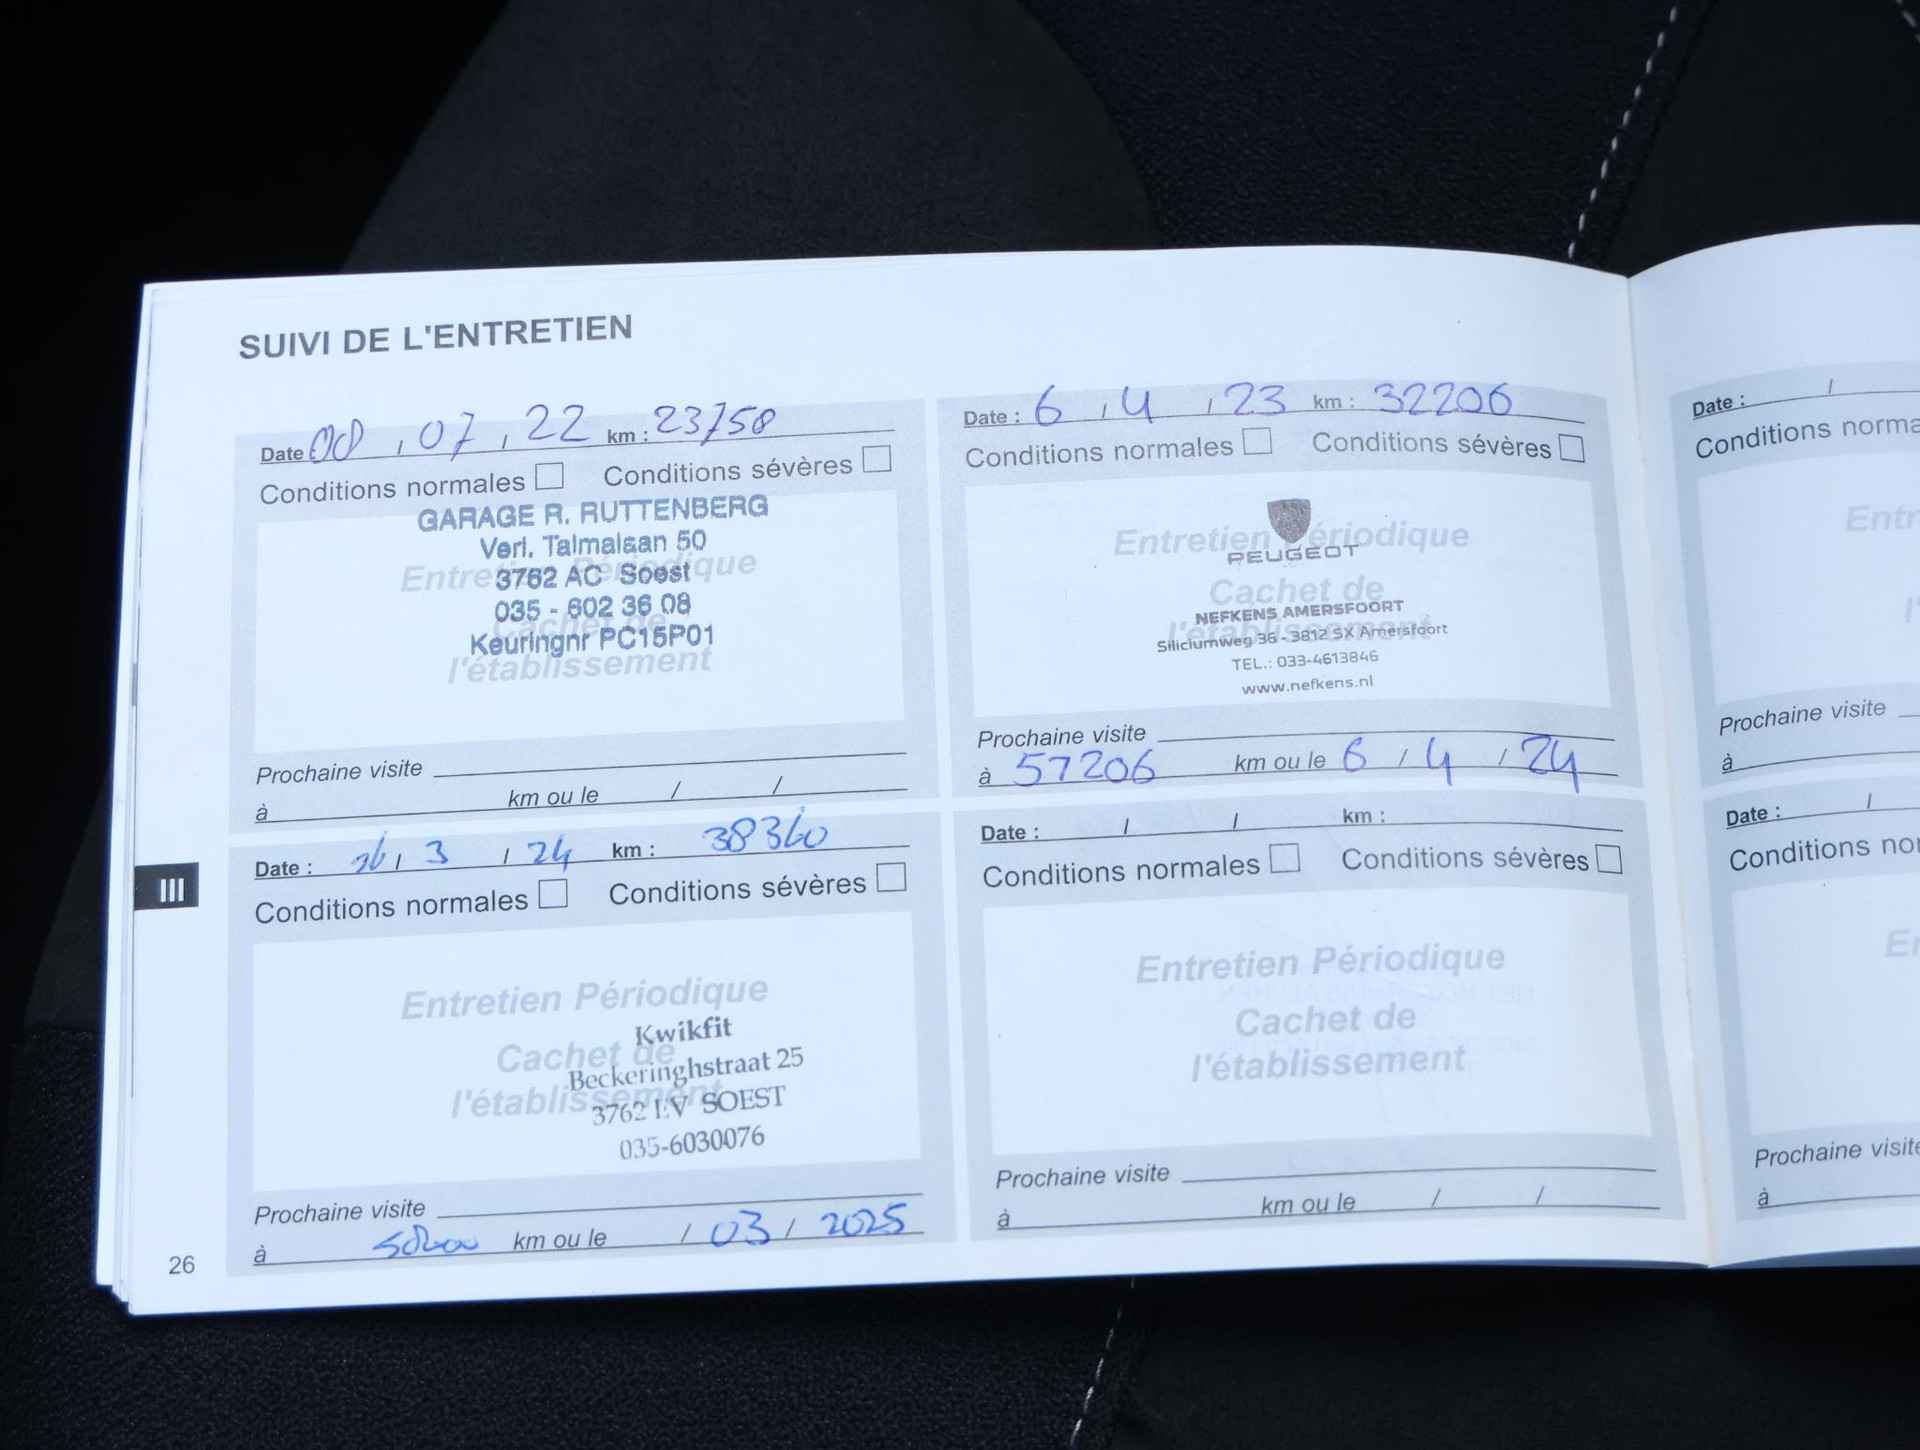 SUIVI DE L'ENTRETIEN
Date 08 / 07 / 22 km : 23758
Conditions normales Conditions sévères
GARAGE R. RUTTENBERG
Verl. Talmalaan 50
3762 AC Soest
035 - 602 36 08
Keuringnr PC15P01
Entretien Périodique
Cachet de
l'établissement
Prochaine visite
à km ou le / /
Date : 6 / 4 / 23 km : 32206
Conditions normales Conditions sévères
PEUGEOT
NEFKENS AMERSFOORT
Siliciumweg 36 - 3812 SX Amersfoort
TEL.: 033-4613846
www.nefkens.nl
Entretien Périodique
Cachet de
l'établissement
Prochaine visite
à 57206 km ou le 6 / 4 / 24
Date : 26 / 3 / 24 km : 38360
Conditions normales Conditions sévères
Entretien Périodique
Cachet de
l'établissement
Kwikfit
Beckeringhstraat 25
3762 EV SOEST
035-6030076
Prochaine visite
à km ou le / 03 / 2025
Date : / / km :
Conditions normales Conditions sévères
Entretien Périodique
Cachet de
l'établissement
Prochaine visite
à km ou le / /
III
26
Date : /
Conditions norma
Entr
Prochaine visite
à
Date : /
Conditions nor
Prochaine visite
à